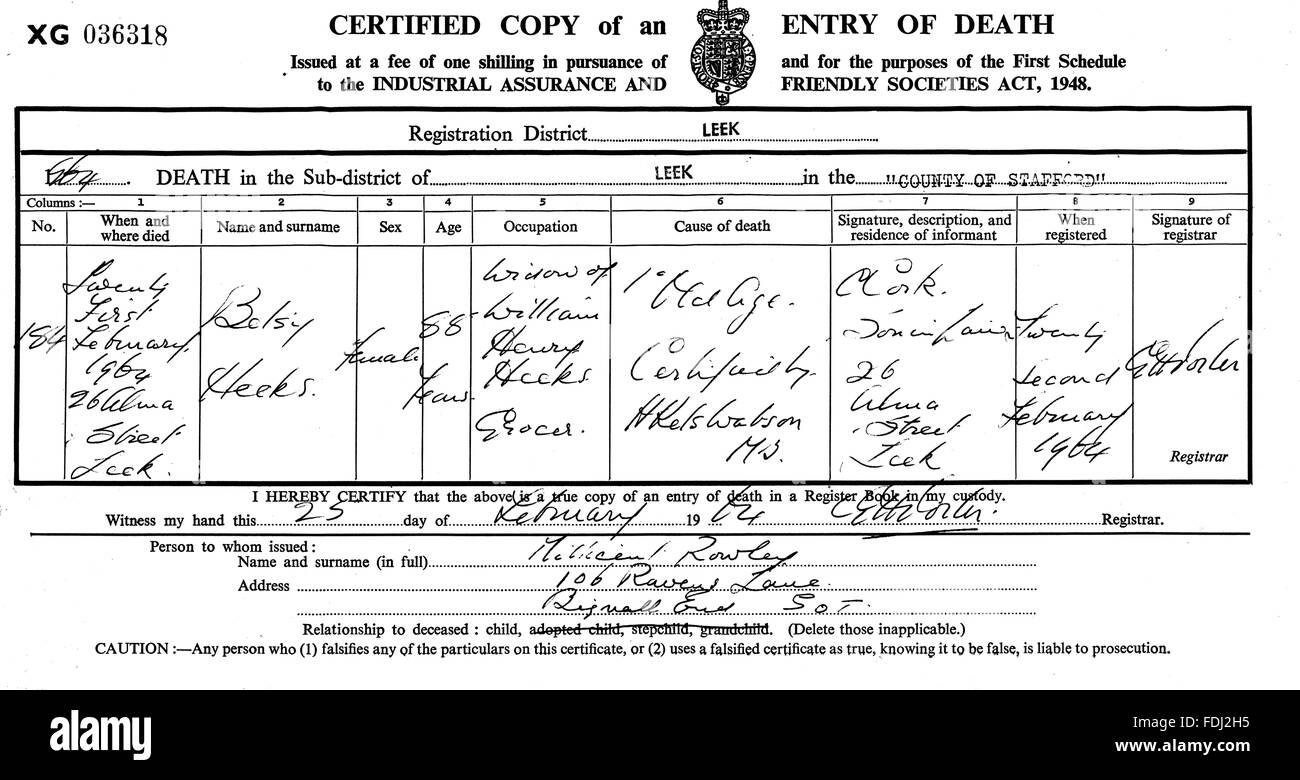 XG 036318
CERTIFIED COPY of an ENTRY OF DEATH
Issued at a fee of one shilling in pursuance of and for the purposes of the First Schedule
to the INDUSTRIAL ASSURANCE AND FRIENDLY SOCIETIES ACT, 1948.
Registration District LEEK
1964. DEATH in the Sub-district of LEEK in the "COUNTY OF STAFFORD"
Columns :— 1 2 3 4 5 6 7 8 9
No. When and where died Name and surname Sex Age Occupation Cause of death Signature, description, and residence of informant When registered Signature of registrar
184
Twenty
First
February
1964
26 Alma
Street
Leek.
Betsy
Heeks.
Female
88
Years
Widow of
William
Henry
Heeks
Grocer.
1a Old Age.
Certified by
Watson
M.B.
Cork.
Son in law
26
Alma
Street
Leek
Twenty
Second
February
1964
Registrar
I HEREBY CERTIFY that the above is a true copy of an entry of death in a Register Book in my custody.
Witness my hand this 25 day of February 1964 Registrar.
Person to whom issued :
Name and surname (in full) Millicent Rowley
Address 106 Ravens Lane
Bignall End S o T.
Relationship to deceased : child, adopted child, stepchild, grandchild. (Delete those inapplicable.)
CAUTION :—Any person who (1) falsifies any of the particulars on this certificate, or (2) uses a falsified certificate as true, knowing it to be false, is liable to prosecution.
alamy stock photo
FDJ2H5
www.alamy.com